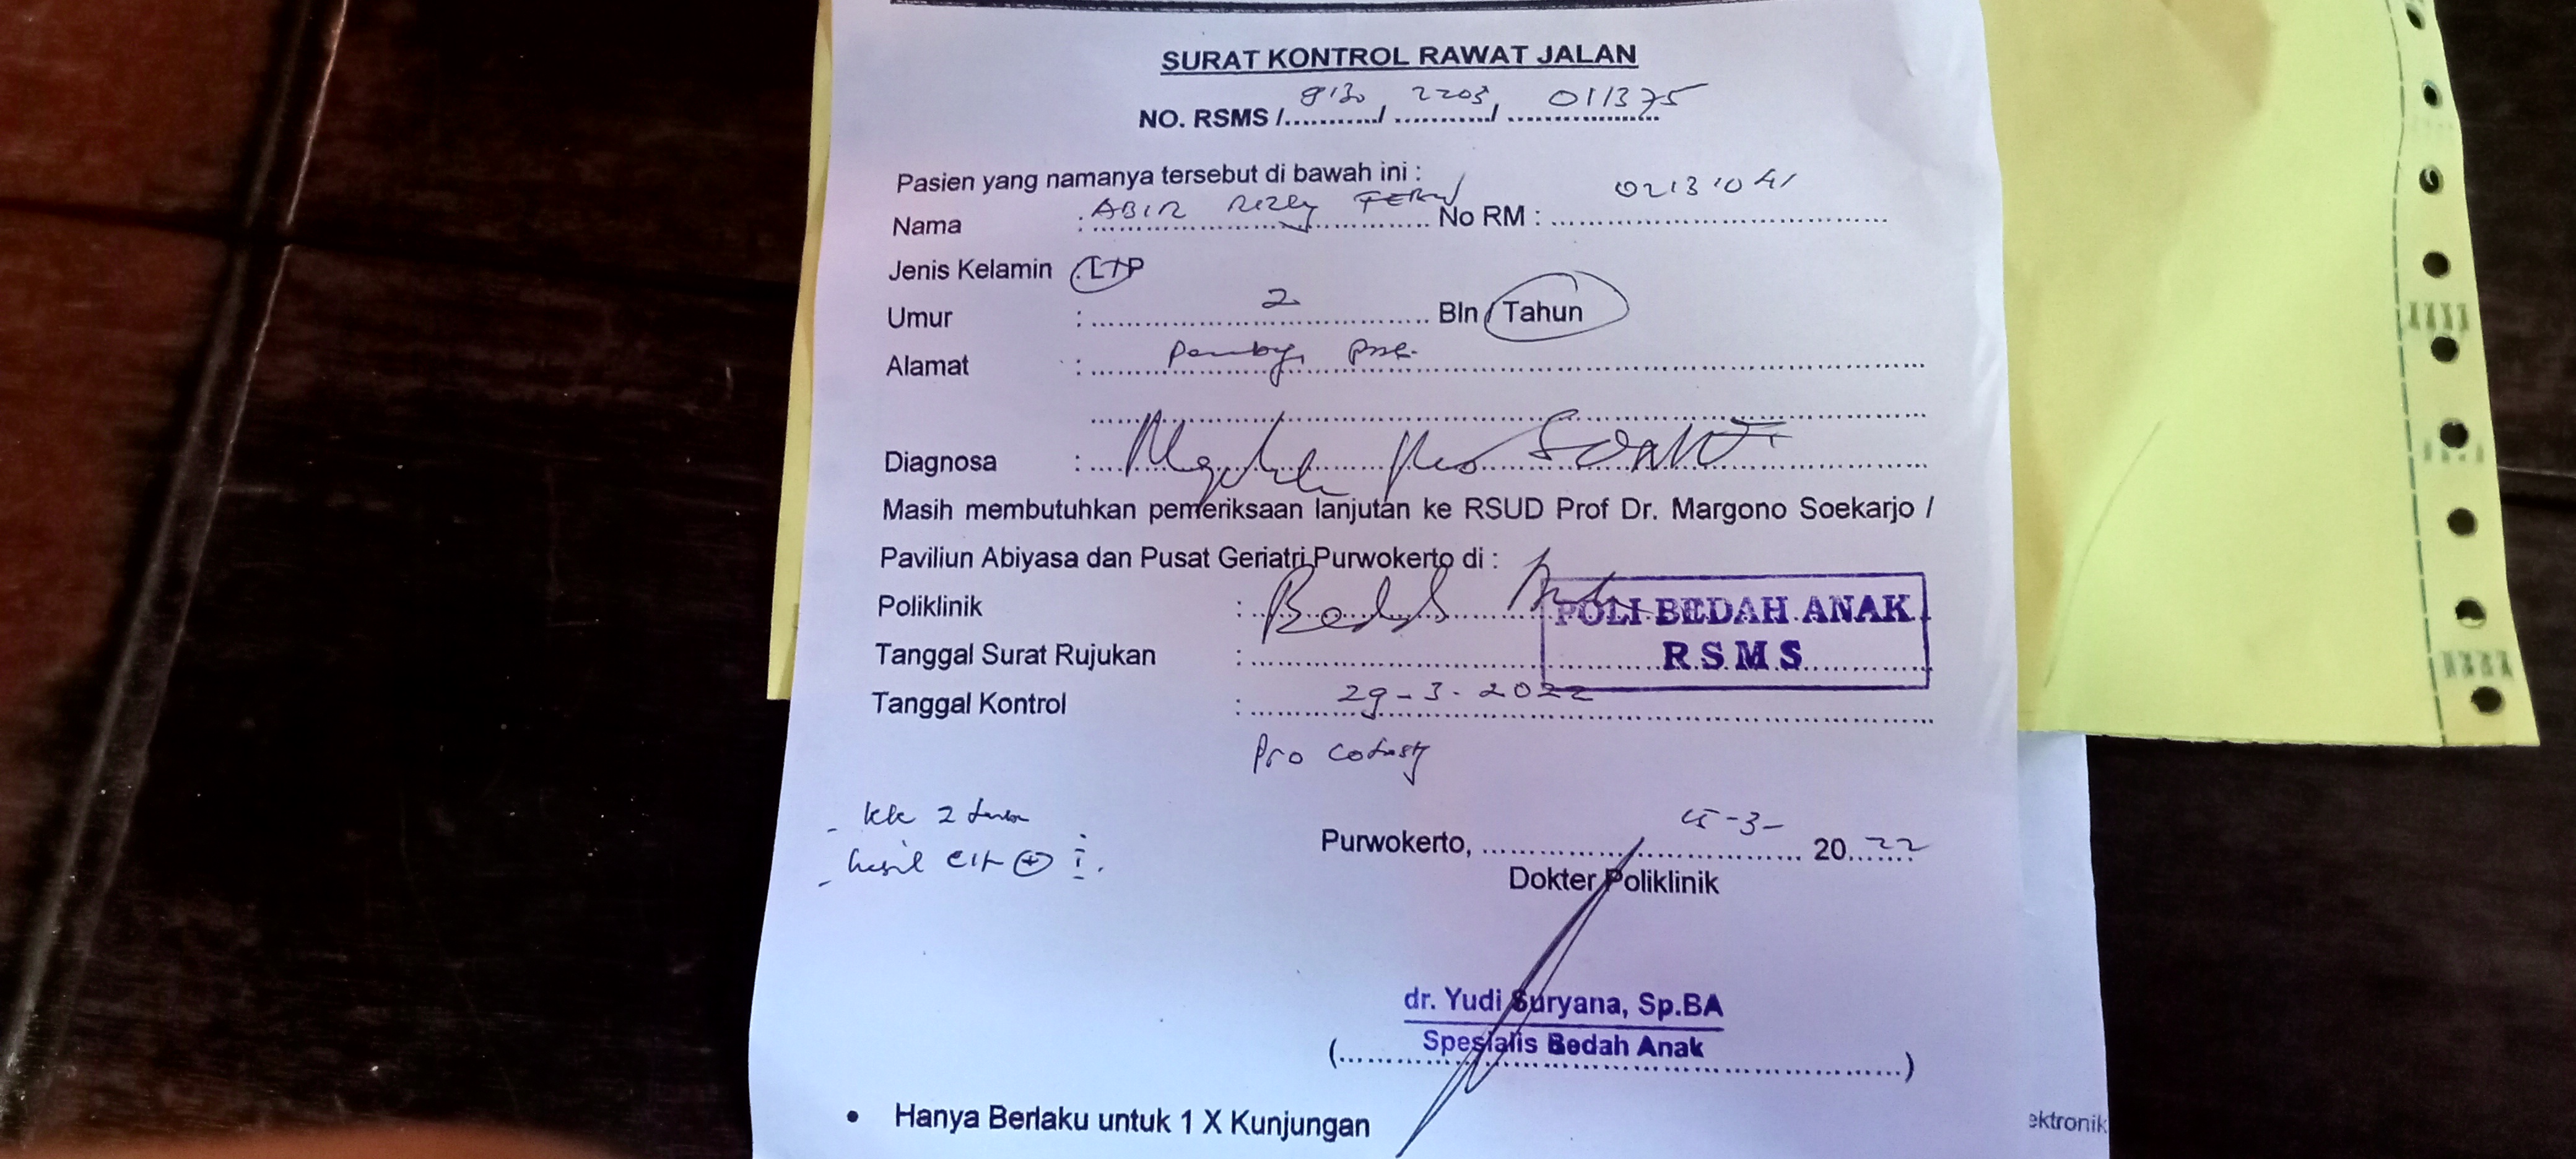 SURAT KONTROL RAWAT JALAN
NO. RSMS /........../ ........../ 011375
Pasien yang namanya tersebut di bawah ini :
Nama : ABIR RIZKY No RM : 02131041
Jenis Kelamin : L / P
Umur : 2 Bln / Tahun
Alamat :
Diagnosa :
Masih membutuhkan pemeriksaan lanjutan ke RSUD Prof Dr. Margono Soekarjo /
Paviliun Abiyasa dan Pusat Geriatri Purwokerto di :
Poliklinik : Bedah Anak
POLI BEDAH ANAK
R S M S
Tanggal Surat Rujukan :
Tanggal Kontrol : 29-3-2022
Pro
- KK 2
- hasil
Purwokerto, -3- 20 22
Dokter Poliklinik
dr. Yudi Suryana, Sp.BA
Spesialis Bedah Anak
(..........)
• Hanya Berlaku untuk 1 X Kunjungan
ektronik